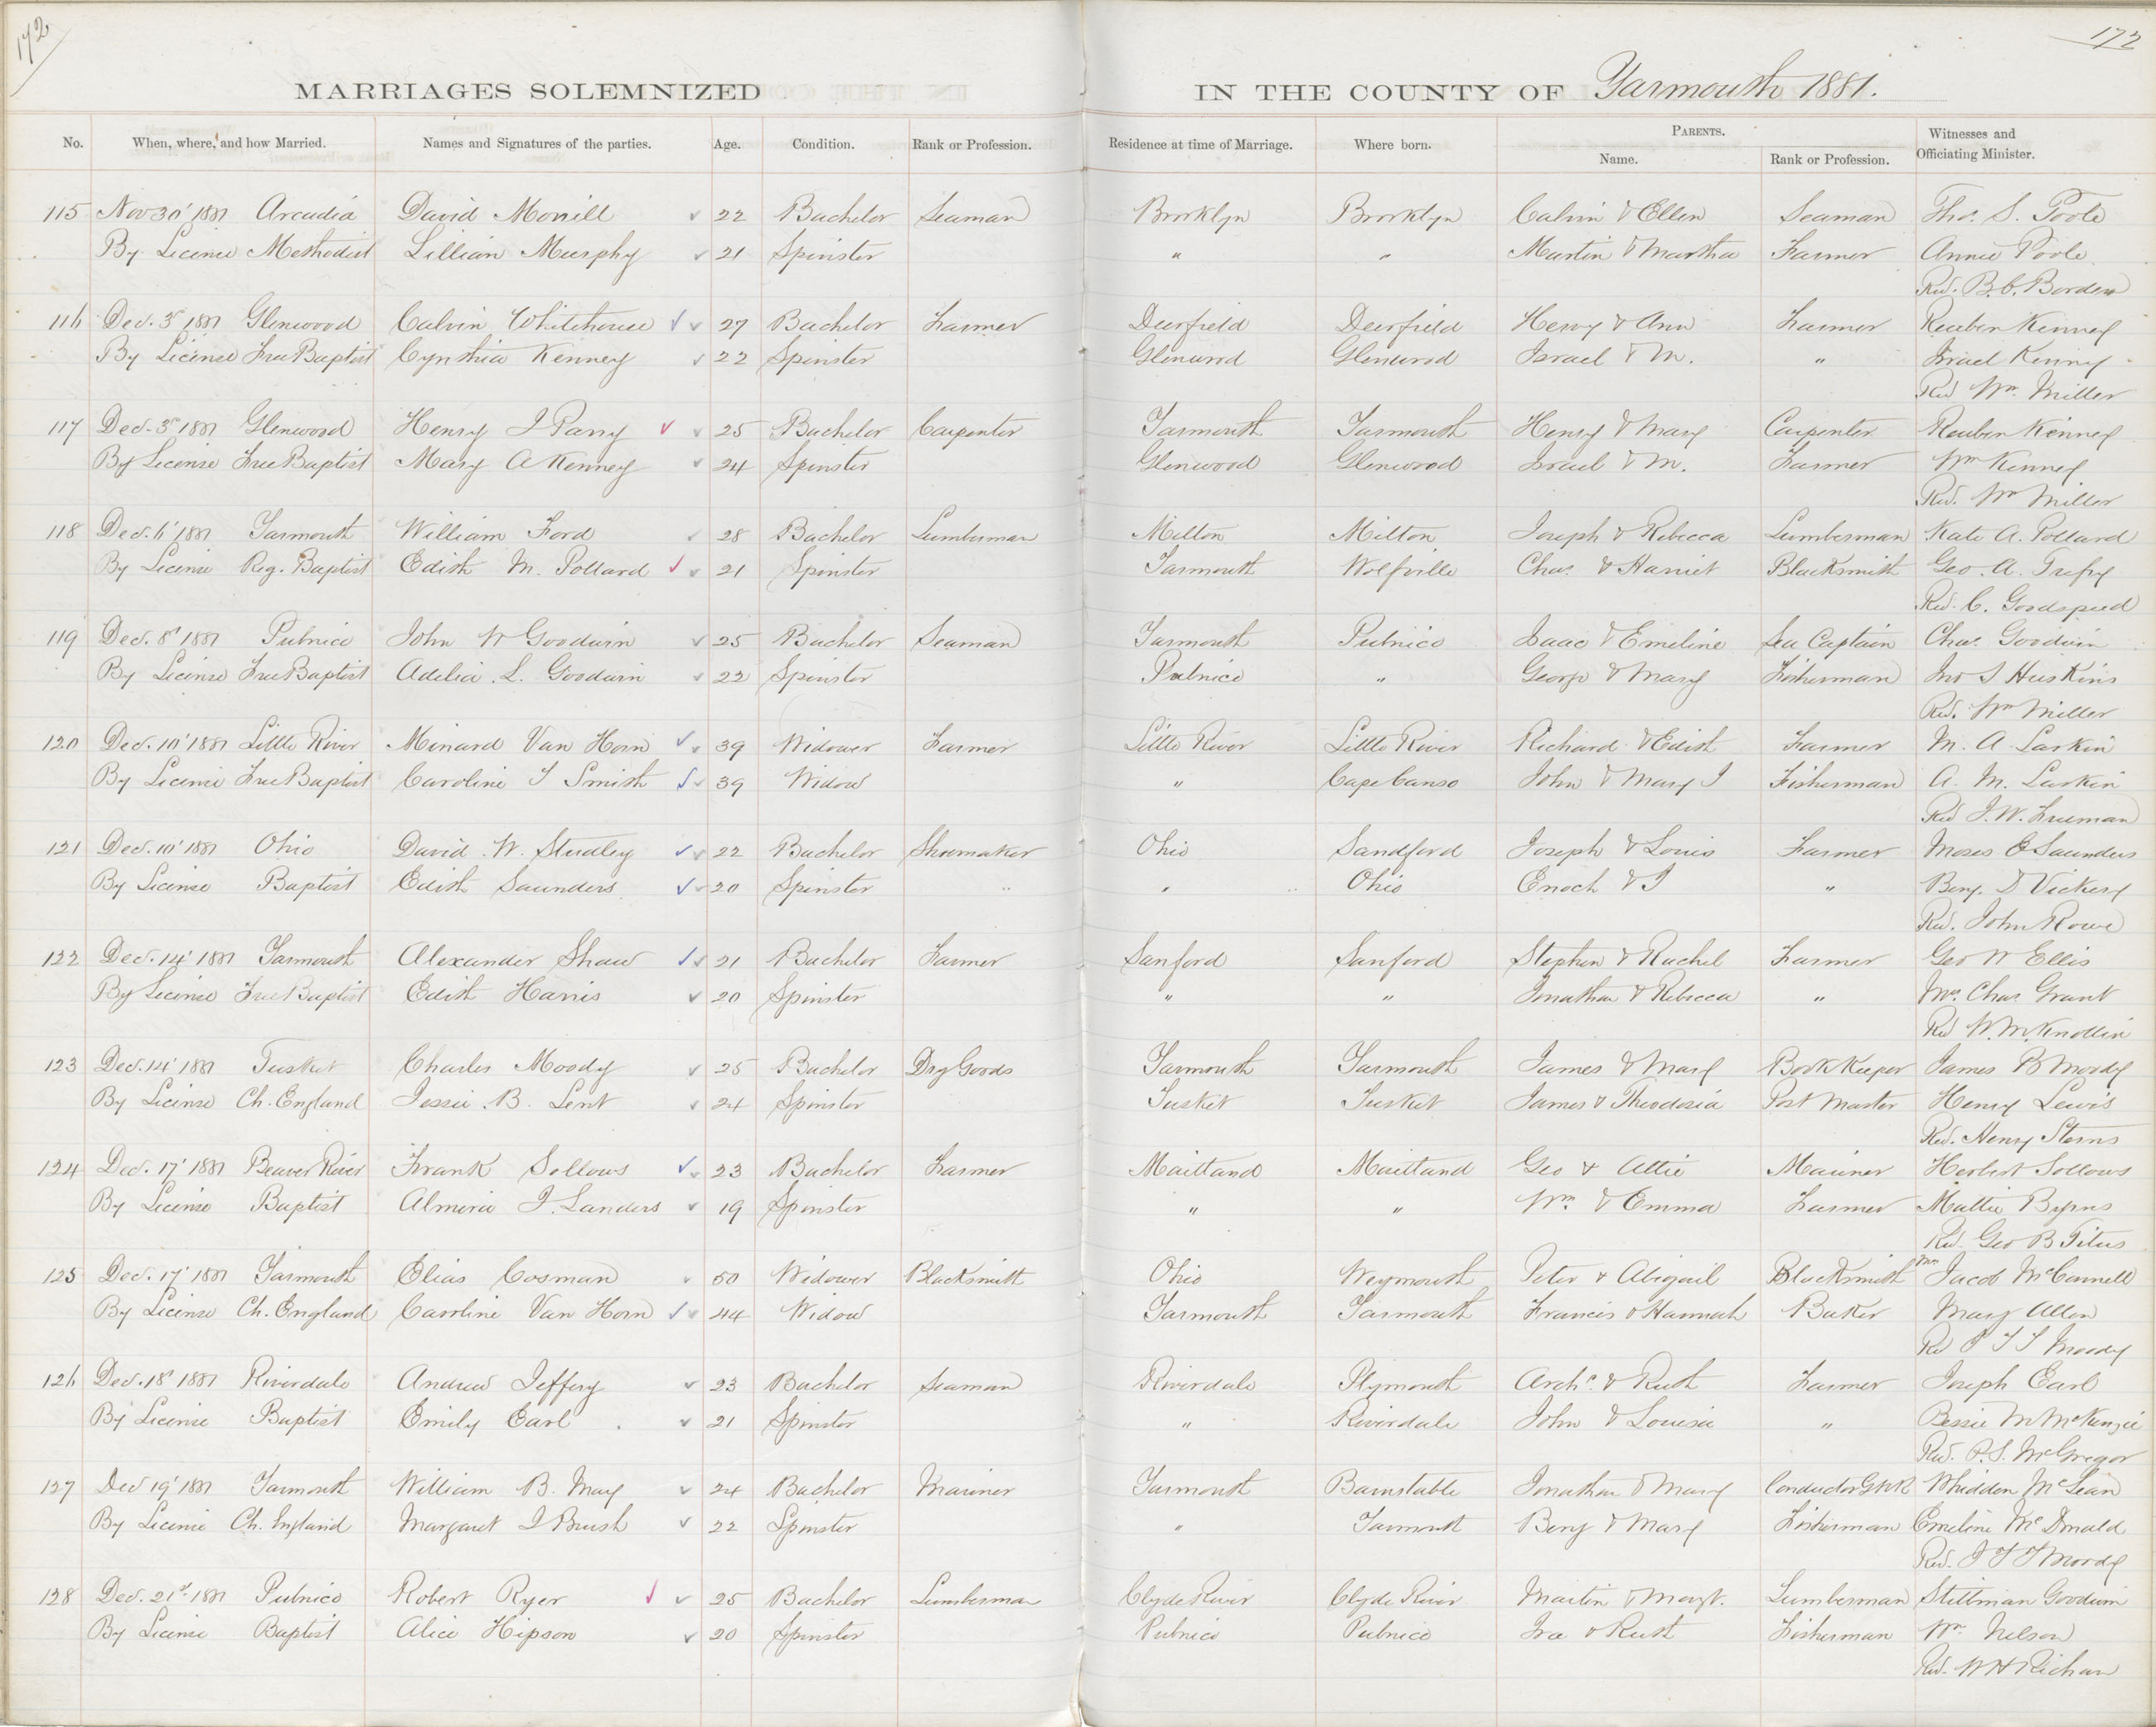 172
172
MARRIAGES SOLEMNIZED IN THE COUNTY OF Yarmouth 1881.
No. When, where, and how Married. Names and Signatures of the parties. Age. Condition. Rank or Profession. Residence at time of Marriage. Where born. PARENTS. Name. Rank or Profession. Witnesses and Officiating Minister.
115 Nov 30' 1881 Arcadia David Morrill 22 Bachelor Seaman Brooklyn Brooklyn Calvin & Ellen Seaman Thos. S. Poole
By License Methodist Lillian Murphy 21 Spinster " " Martin & Martha Farmer Annie Poole
Rev. B. C. Borden
116 Dec. 3rd 1881 Glenwood Calvin Whitehouse 27 Bachelor Farmer Deerfield Deerfield Henry & Ann Farmer Reuben Kenney
By License Free Baptist Cynthia Kenney 22 Spinster Glenwood Glenwood Israel & M. " Israel Kenney
Rev Wm. Miller
117 Dec. 3rd 1881 Glenwood Henry I Parry 25 Bachelor Carpenter Yarmouth Yarmouth Henry & Mary Carpenter Reuben Kenney
By License Free Baptist Mary A Kenney 24 Spinster Glenwood Glenwood Israel & M. Farmer Wm Kenney
Rev. Wm Miller
118 Dec. 6' 1881 Yarmouth William Ford 28 Bachelor Lumberman Milton Milton Joseph & Rebecca Lumberman Kate A. Pollard
By License Reg. Baptist Edith M. Pollard 21 Spinster Yarmouth Wolfville Chas. & Harriet Blacksmith Geo. A. Trefry
Rev. C. Goodspeed
119 Dec. 8' 1881 Pubnico John W Goodwin 25 Bachelor Seaman Yarmouth Pubnico Isaac & Emeline Sea Captain Chas. Goodwin
By License Free Baptist Adelia. L. Goodwin 22 Spinster Pubnico " George & Mary Fisherman Jno S Huskins
Rev. Wm Miller
120 Dec. 10' 1881 Little River Minard Van Horn 39 Widower Farmer Little River Little River Richard & Edith Farmer M. A. Larkin
By License Free Baptist Caroline I Smith 39 Widow " Cape Canso John & Mary I Fisherman A. M. Larkin
Rev J. W. Freeman
121 Dec. 10' 1881 Ohio David. W. Studley 22 Bachelor Shoemaker Ohio Sandford Joseph & Louis Farmer Moses E Saunders
By License Baptist Edith Saunders 20 Spinster " Ohio Enoch & I " Benj. D Vickery
Rev. John Rowe
122 Dec. 14' 1881 Yarmouth Alexander Shaw 21 Bachelor Farmer Sanford Sanford Stephen & Rachel Farmer Geo W Ellis
By License Free Baptist Edith Harris 20 Spinster " " Jonathan & Rebecca " Mrs. Chas. Grant
Rev W. M. Knollin
123 Dec. 14' 1881 Tusket Charles Moody 25 Bachelor Dry Goods Yarmouth Yarmouth James & Mary Book Keeper James B Moody
By License Ch. England Jessie. B. Lent 24 Spinster Tusket Tusket James & Theodosia Post Master Henry Lewis
Rev. Henry Sterns
124 Dec. 17' 1881 Beaver River Frank Sollows 23 Bachelor Farmer Maitland Maitland Geo & Attie Mariner Herbert Sollows
By License Baptist Almeria J. Landers 19 Spinster " " Wm. & Emma Farmer Mattie Byrns
Rev. Geo B Titus
125 Dec. 17' 1881 Yarmouth Elias Cosman 50 Widower Blacksmith Ohio Weymouth Peter & Abigail Blacksmith Mrs Jacob McConnell
By License Ch. England Caroline Van Horn 44 Widow Yarmouth Yarmouth Francis & Hannah Baker Mary Allen
Rev J T T Moody
126 Dec. 18' 1881 Riverdale Andrew Jeffery 23 Bachelor Seaman Riverdale Plymouth Archd. & Ruth Farmer Joseph Earl
By License Baptist Emily Earl 21 Spinster " Riverdale John & Louisa " Bessie M McKenzie
Rev. P. S. McGregor
127 Dec 19' 1881 Yarmouth William B. May 24 Bachelor Mariner Yarmouth Barnstable Jonathan & Mary Conductor Whidden McLean
By License Ch. England Margaret I Brush 22 Spinster " Yarmouth Benj & Mary Fisherman Emeline McDonald
Rev. J T T Moody
128 Dec. 21st 1881 Pubnico Robert Ryer 25 Bachelor Lumberman Clyde River Clyde River Martin & Margt. Lumberman Stillman Goodwin
By License Baptist Alice Hipson 20 Spinster Pubnico Pubnico Ira & Ruth Fisherman Wm. Nelson
Rev. W H Richan